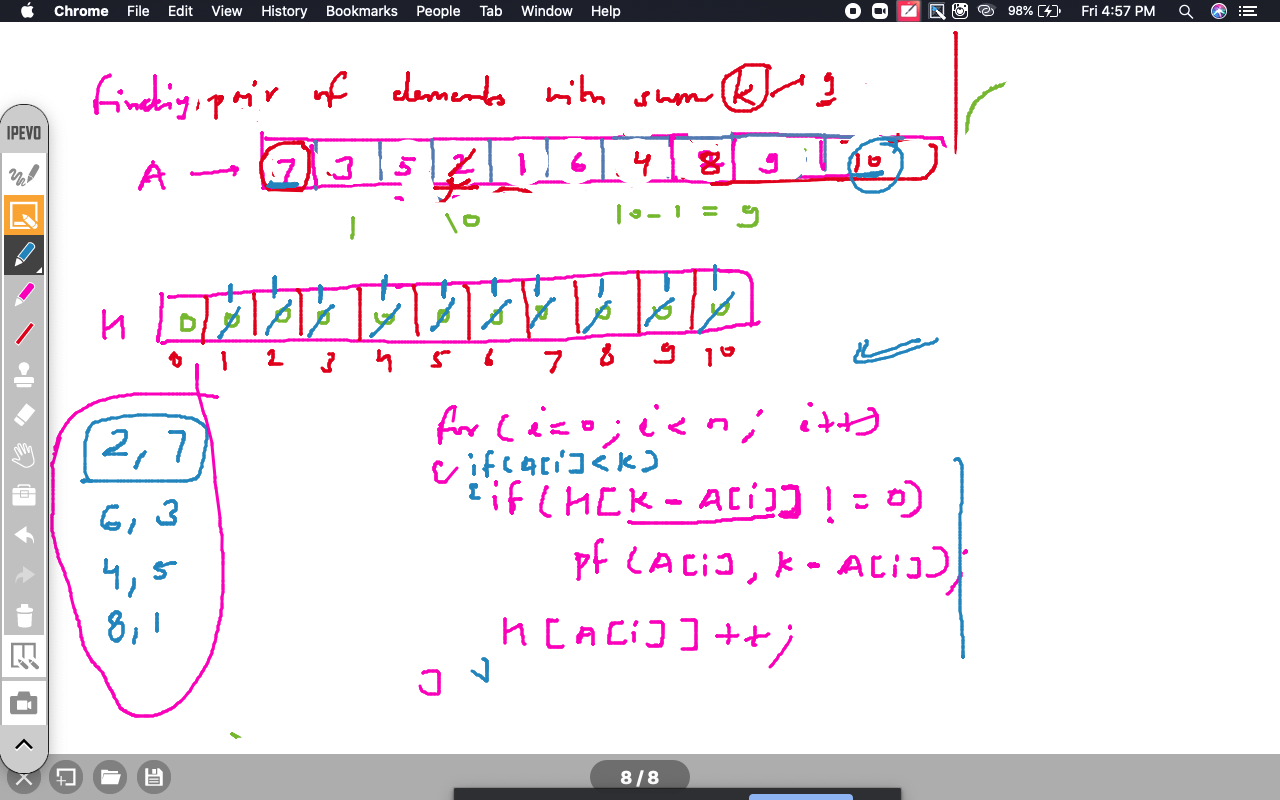 Chrome File Edit View History Bookmarks People Tab Window Help 98% Fri 4:57 PM
IPEVO
finding pair of elements with sum k 9
A → 7 3 5 2 1 6 4 8 9 10
1 10 10-1 = 9
1 1 1 1 1 1 1 1 1 1
H 0 0 0 0 0 0 0 0 0 0 0
0 1 2 3 4 5 6 7 8 9 10
2, 7
6, 3
4, 5
8, 1
for (i=0; i<n; i++)
{ if(A[i]<k)
{ if (H[k - A[i]] != 0)
pf (A[i], k - A[i]);
H[A[i]]++;
} }
8 / 8